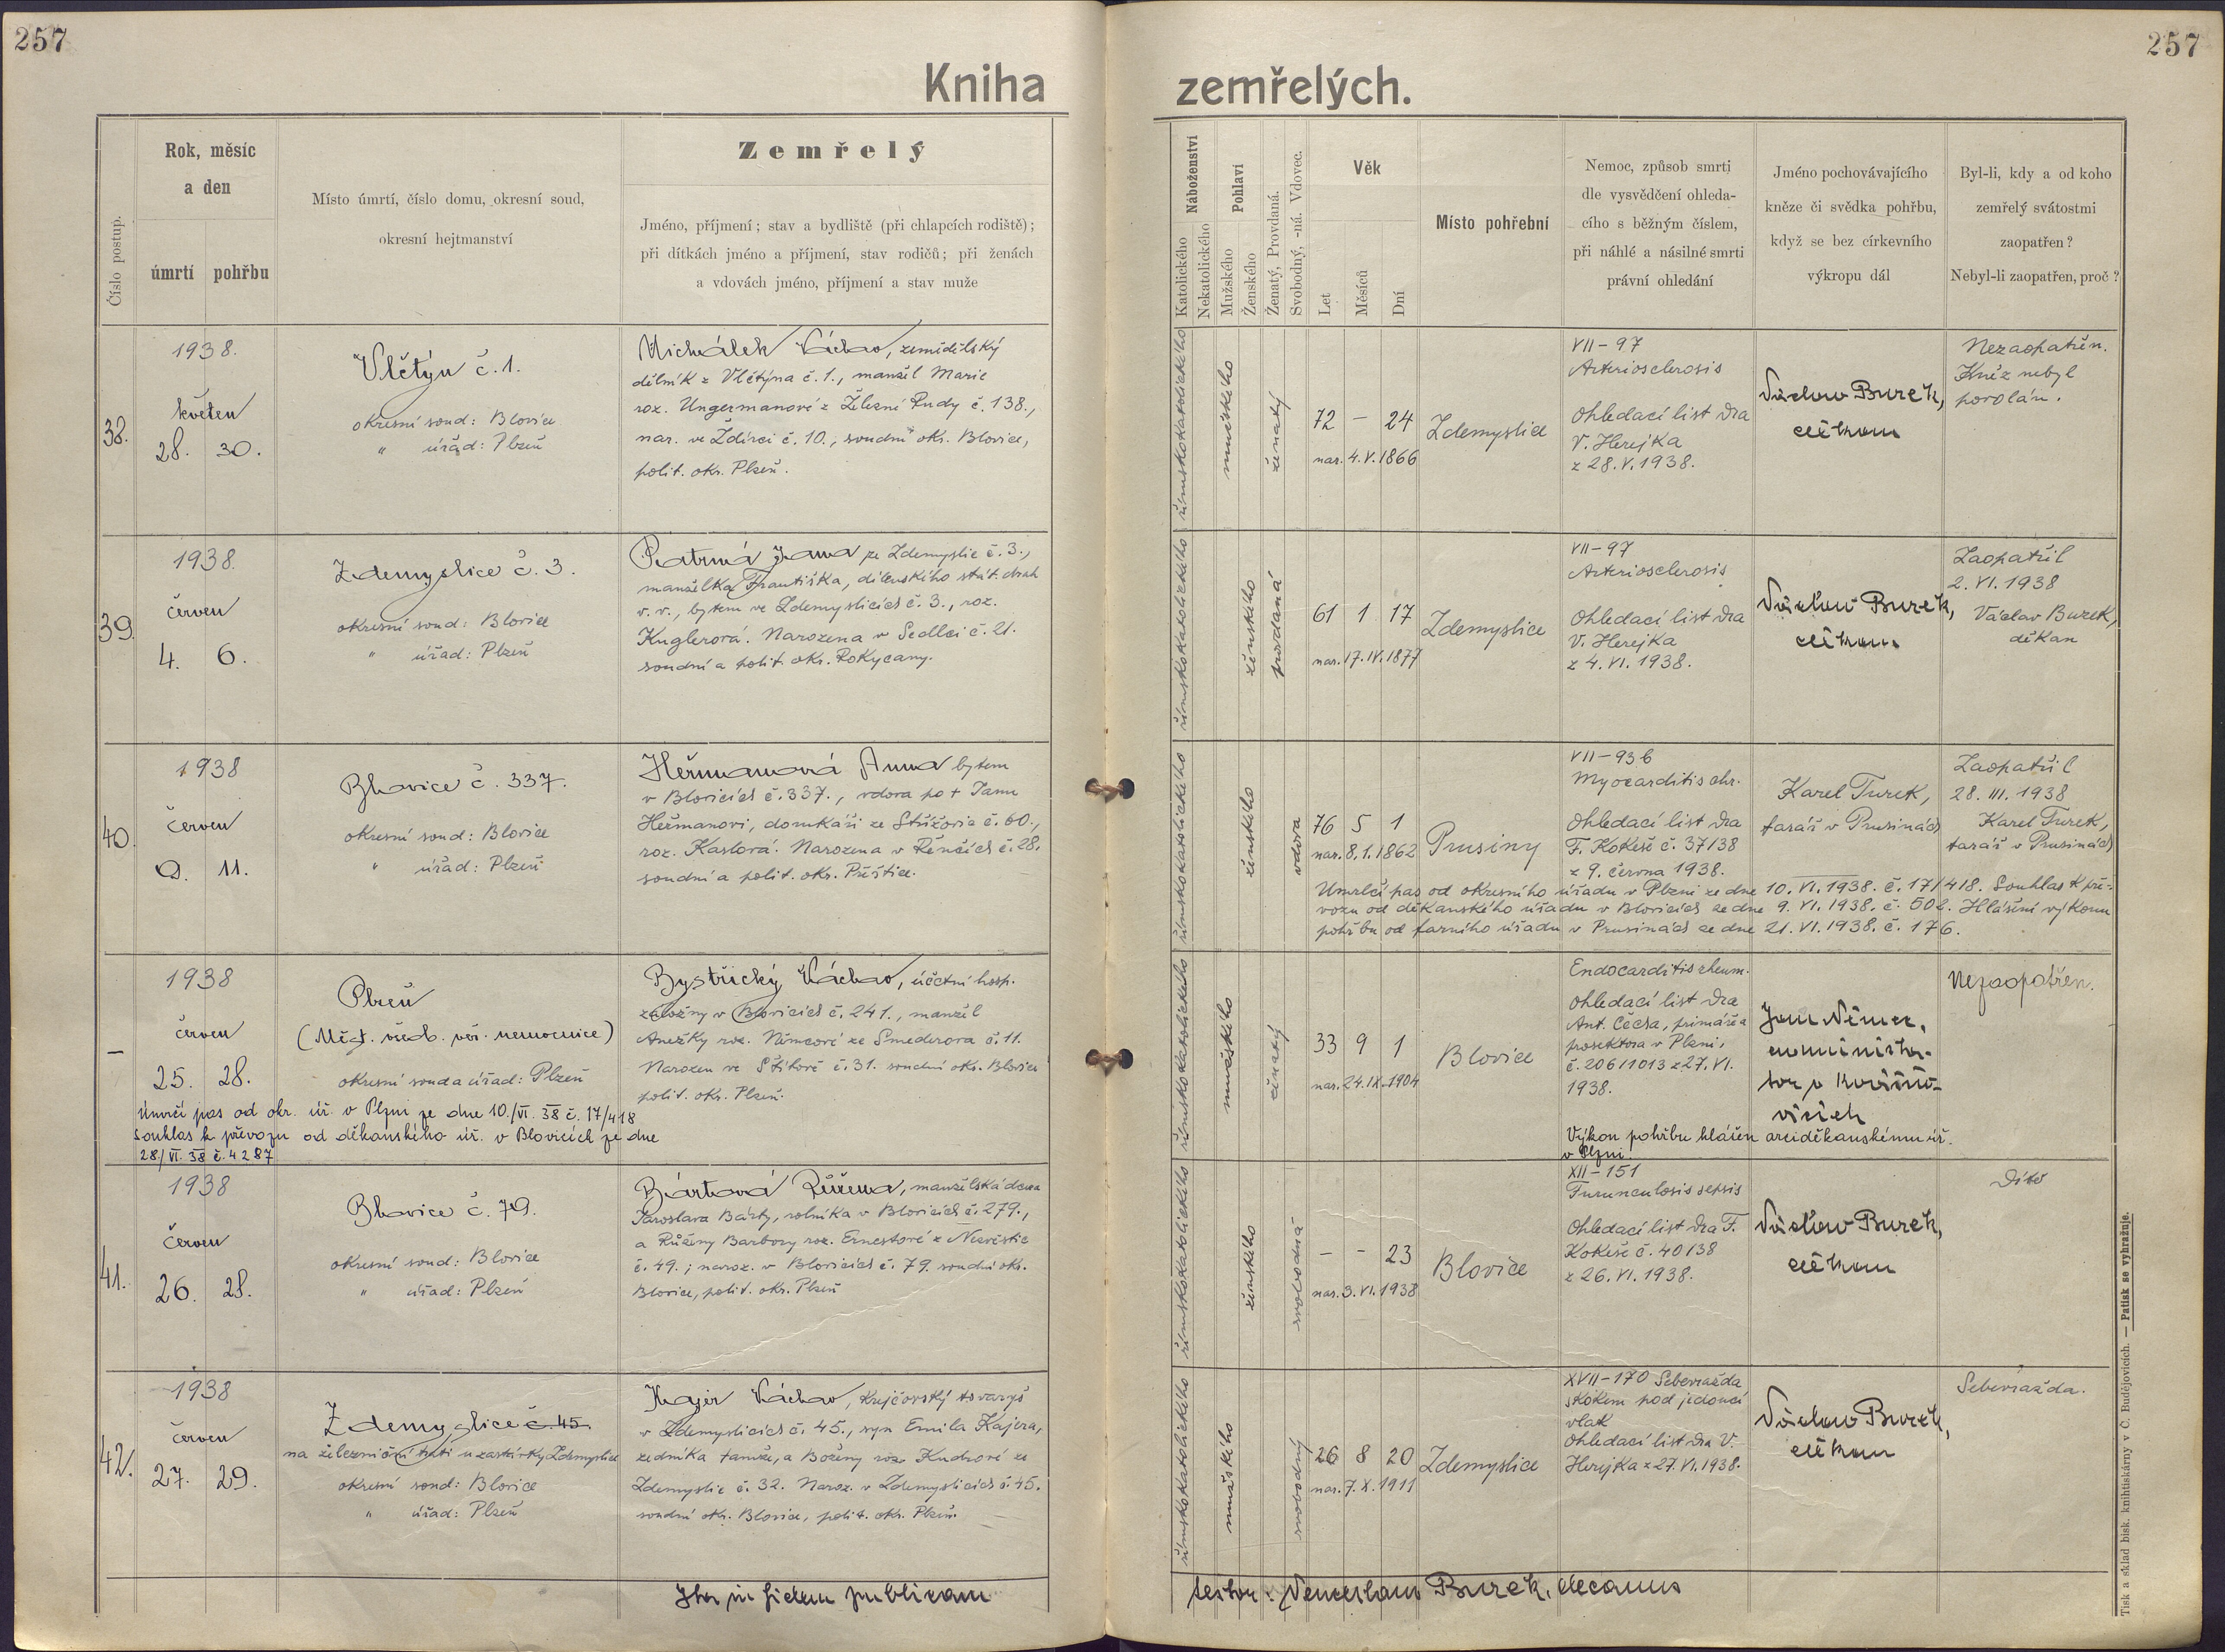 257
257
Kniha zemřelých.
Číslo postup.
Rok, měsíc
a den
úmrtí pohřbu
Místo úmrtí, číslo domu, okresní soud,
okresní hejtmanství
Zemřelý
Jméno, příjmení; stav a bydliště (při chlapcích rodiště);
při dítkách jméno a příjmení, stav rodičů; při ženách
a vdovách jméno, příjmení a stav muže
Náboženství
Katolického
Nekatolického
Pohlaví
Mužského
Ženského
Ženatý, Provdaná.
Svobodný, -ná. Vdovec.
Věk
Let
Měsíců
Dní
Místo pohřební
Nemoc, způsob smrti
dle vysvědčení ohleda-
cího s běžným číslem,
při náhlé a násilné smrti
právní ohledání
Jméno pochovávajícího
kněze či svědka pohřbu,
když se bez církevního
výkropu dál
Byl-li, kdy a od koho
zemřelý svátostmi
zaopatřen?
Nebyl-li zaopatřen, proč?
38.
1938.
květen
28. 30.
Vlčtýn č. 1.
okresní soud: Blovice
" úřad: Plzeň
Michálek Václav, zemědělský
dělník z Vlčtýna č. 1., manžel Marie
roz. Ungermanové z Železné Rudy č. 138.,
nar. ve Ždírci č. 10., soudní okr. Blovice,
polit. okr. Plzeň.
římskokatolického
mužského
ženatý
72 – 24
nar. 4. V. 1866
Zdemyslice
VII-97
Arteriosclerosis
Ohledací list Dra
V. Herejka
z 28. V. 1938.
Václav Burek,
děkan
Nezaopatřen.
Kněz nebyl
povolán.
39.
1938.
červen
4. 6.
Zdemyslice č. 3.
okresní soud: Blovice
" úřad: Plzeň
Patrná Jana ze Zdemyslic č. 3.,
manželka Františka, dílenského stát. drah
v. v., bytem ve Zdemyslicích č. 3., roz.
Kuglerová. Narozena v Sedlci č. 21.
soudní a polit. okr. Rokycany.
římskokatolického
ženského
provdaná
61 1 17
nar. 17. IV. 1877
Zdemyslice
VII-97
Arteriosclerosis
Ohledací list Dra
V. Herejka
z 4. VI. 1938.
Václav Burek,
děkan
Zaopatřil
2. VI. 1938
Václav Burek,
děkan
40.
1938
červen
9. 11.
Blovice č. 337.
okresní soud: Blovice
" úřad: Plzeň
Heřmanová Anna bytem
v Blovicích č. 337., vdova po † Janu
Heřmanovi, domkáři ze Střížovic č. 60.,
roz. Kaslová. Narozena v Řenčích č. 28.
soudní a polit. okr. Přeštice.
římskokatolického
ženského
vdova
76 5 1
nar. 8. 1. 1862
Prusiny
VII-93b
Myocarditis chr.
Ohledací list Dra
F. Kokeše č. 37/38
z 9. června 1938.
Karel Turek,
farář v Prusinách
Zaopatřil
28. III. 1938
Karel Turek,
farář v Prusinách
Umrlčí pas od okresního úřadu v Plzni ze dne 10. VI. 1938. č. 17/418. Souhlas k pře-
vozu od děkanského úřadu v Blovicích ze dne 9. VI. 1938. č. 502. Hlášení výkonu
pohřbu od farního úřadu v Prusinách ze dne 21. VI. 1938. č. 176.
–
1938
červen
25. 28.
Plzeň
(Měst. všeob. veř. nemocnice)
okresní soud a úřad: Plzeň
Úmrčí pas od okr. úř. v Plzni ze dne 10./VI. 38 č. 17/418
souhlas k převozu od děkanského úř. v Blovicích ze dne
28./VI. 38 č. 4287
Bystřický Václav, účetní hosp.
záložny v Blovicích č. 241., manžel
Anežky roz. Němcové ze Smederova č. 11.
Narozen ve Štítově č. 31. soudní okr. Blovice
polit. okr. Plzeň.
římskokatolického
mužského
ženatý
33 9 1
nar. 24. IX. 1904
Blovice
Endocarditis rheum.
Ohledací list Dra
Ant. Čecha, primáře a
prosektora v Plzni,
č. 20611013 z 27. VI.
1938.
Jan Němec,
administrá-
tor v
Nezaopatřen.
Výkon pohřbu hlášen arciděkanskému úř.
v Plzni.
41.
1938
červen
26. 28.
Blovice č. 79.
okresní soud: Blovice
" úřad: Plzeň
Bártová Růžena, manželská dcera
Jaroslava Bárty, rolníka v Blovicích č. 279.,
a Růženy Barbory roz. Ernestové z Nezvěstic
č. 49.; naroz. v Blovicích č. 79. soudní okr.
Blovice, polit. okr. Plzeň
římskokatolického
ženského
svobodná
– – 23
nar. 3. VI. 1938
Blovice
XII-151
Furunculosis sepsis
Ohledací list Dra F.
Kokeše č. 40/38
z 26. VI. 1938.
Václav Burek,
děkan
Dítě
42.
1938
červen
27. 29.
Zdemyslice č. 45
na železniční trati u zastávky Zdemyslice
okresní soud: Blovice
" úřad: Plzeň
Kajer Václav, krejčovský tovaryš
v Zdemyslicích č. 45., syn Emila Kajera,
zedníka tamže, a Boženy roz. Kudrové ze
Zdemyslic č. 32. Naroz. v Zdemyslicích č. 45.
soudní okr. Blovice, polit. okr. Plzeň.
římskokatolického
mužského
svobodný
26 8 20
nar. 7. X. 1911
Zdemyslice
XVII-170 Sebevražda
skokem pod jedoucí
vlak
Ohledací list Dra V.
Herejka z 27. VI. 1938.
Václav Burek,
děkan
Sebevražda.
Ita in fidem publicam
testor: Venceslaus Burek, decanus
Tisk a sklad bisk. knihtiskárny v Č. Budějovicích. — Patisk se vyhražuje.